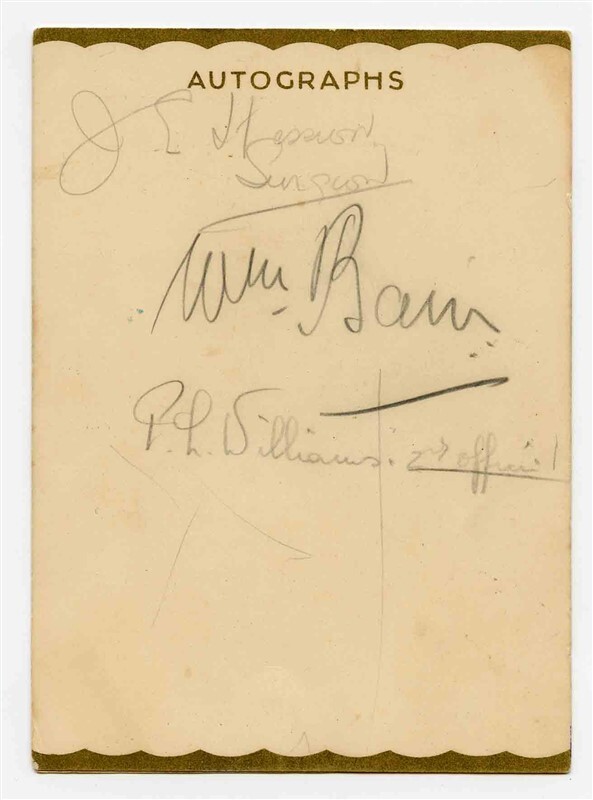 AUTOGRAPHS
J E
Surgeon
Wm Bain.
P. L. Williams. 2nd officer!